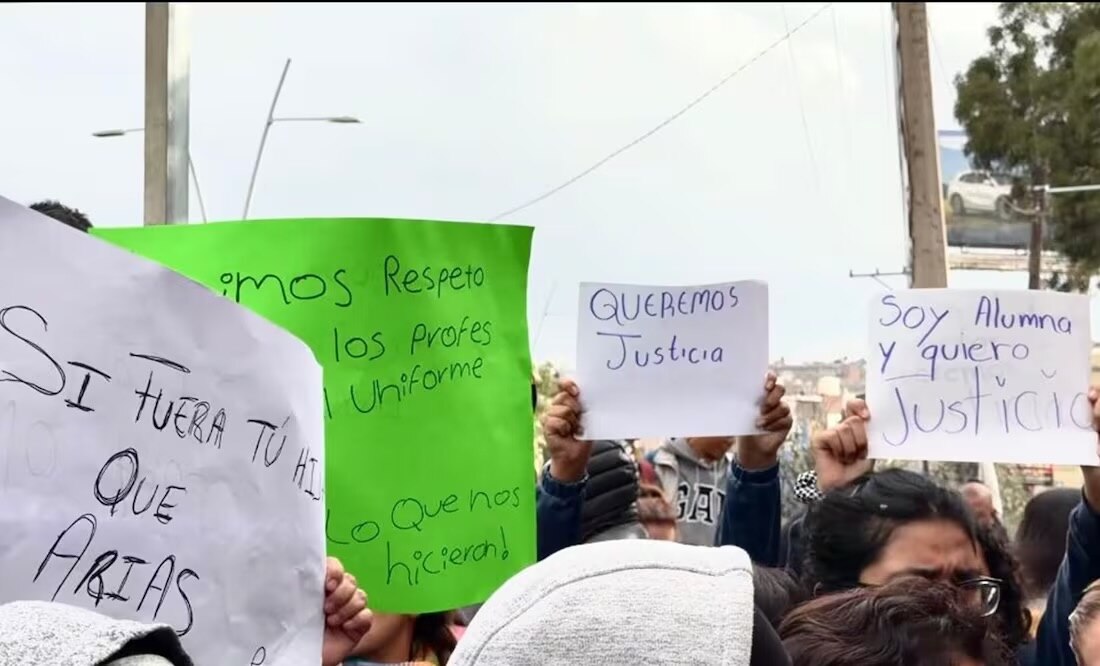 SI FUERA TÚ
QUE
ARIAS
imos Respeto
los profes
Uniforme
Lo Que nos
hicieron!
QUEREMOS
Justicia
Soy Alumna
y quiero
Justicia
GA